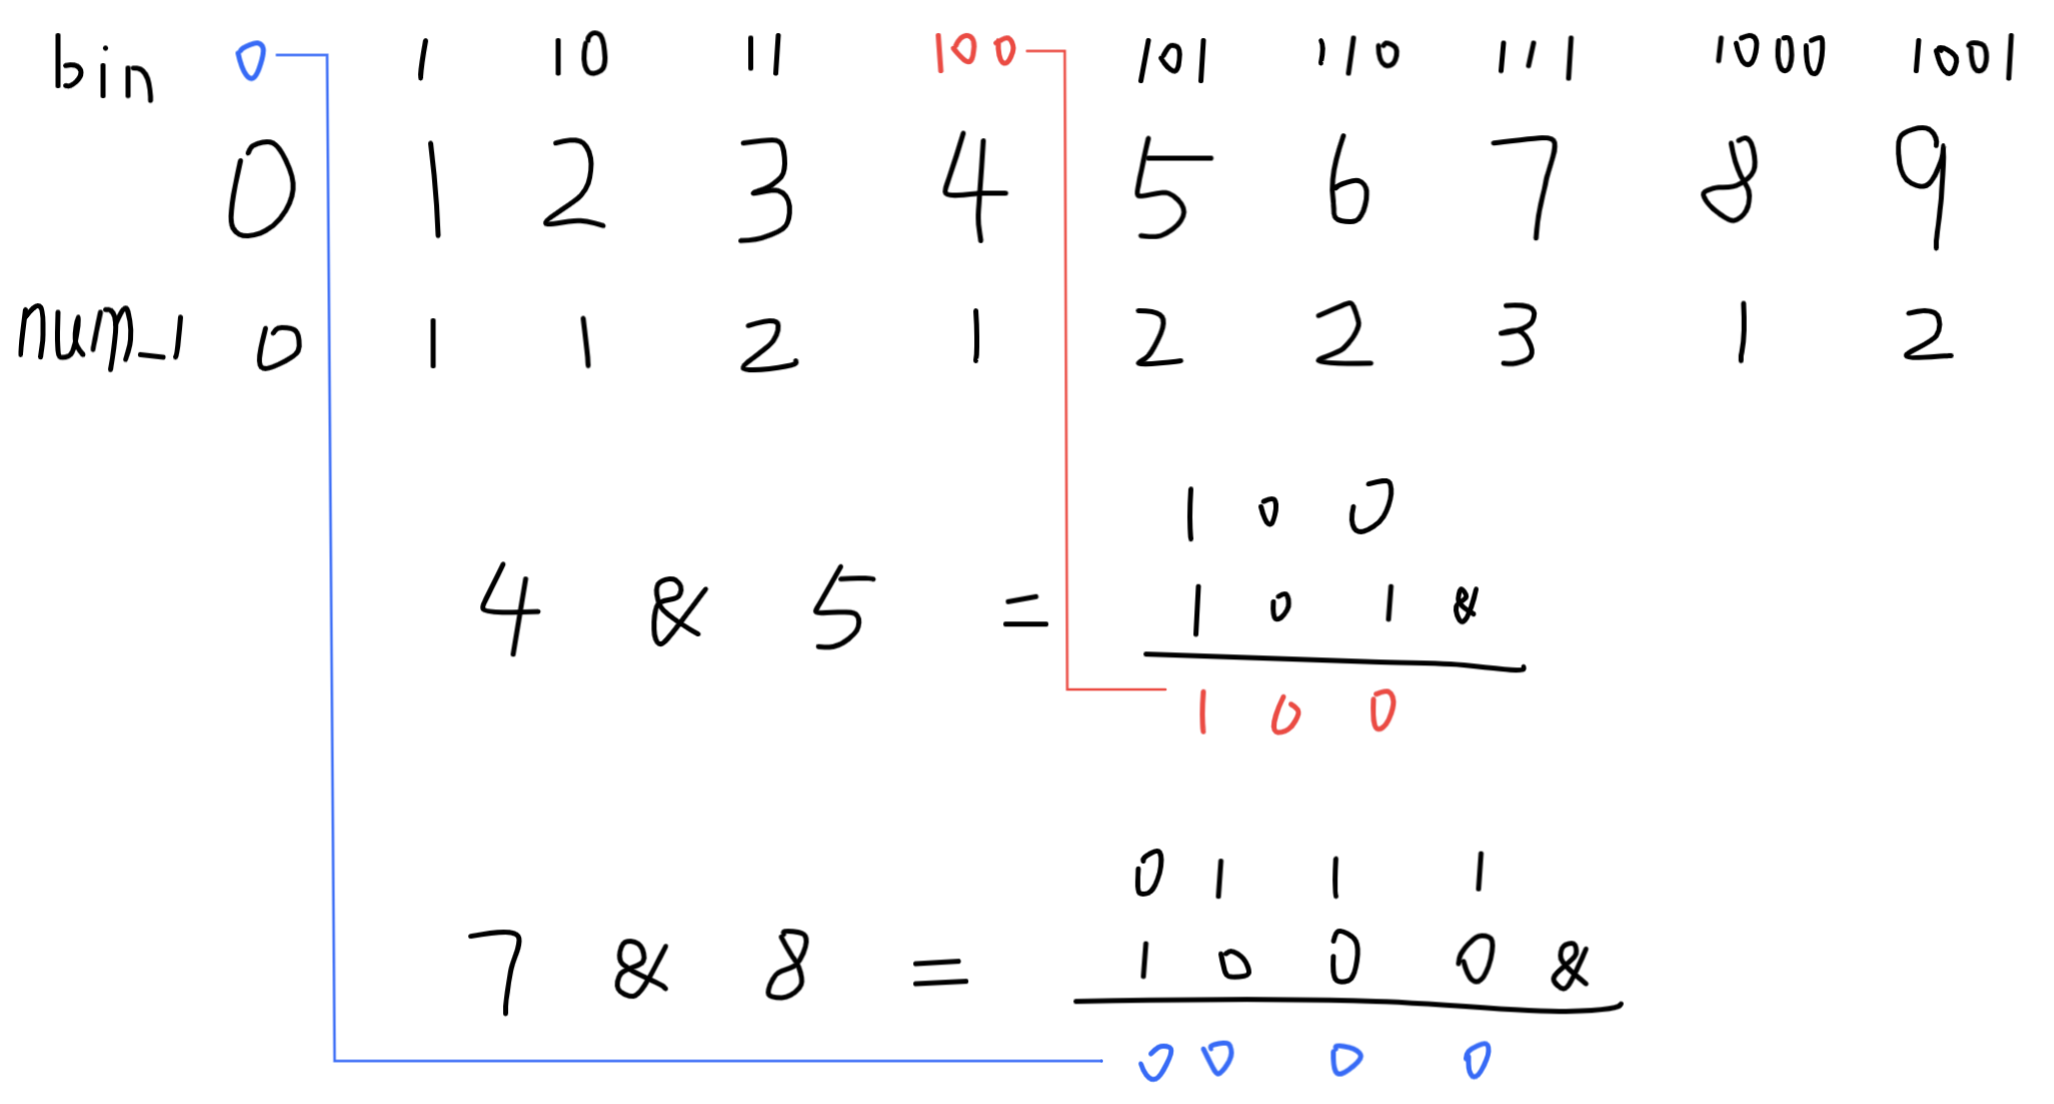 bin 0 1 10 11 100 101 110 111 1000 1001
0 1 2 3 4 5 6 7 8 9
num_1 0 1 1 2 1 2 2 3 1 2
1 0 0
4 & 5 = 1 0 1 &
1 0 0
0 1 1 1
7 & 8 = 1 0 0 0 &
0 0 0 0